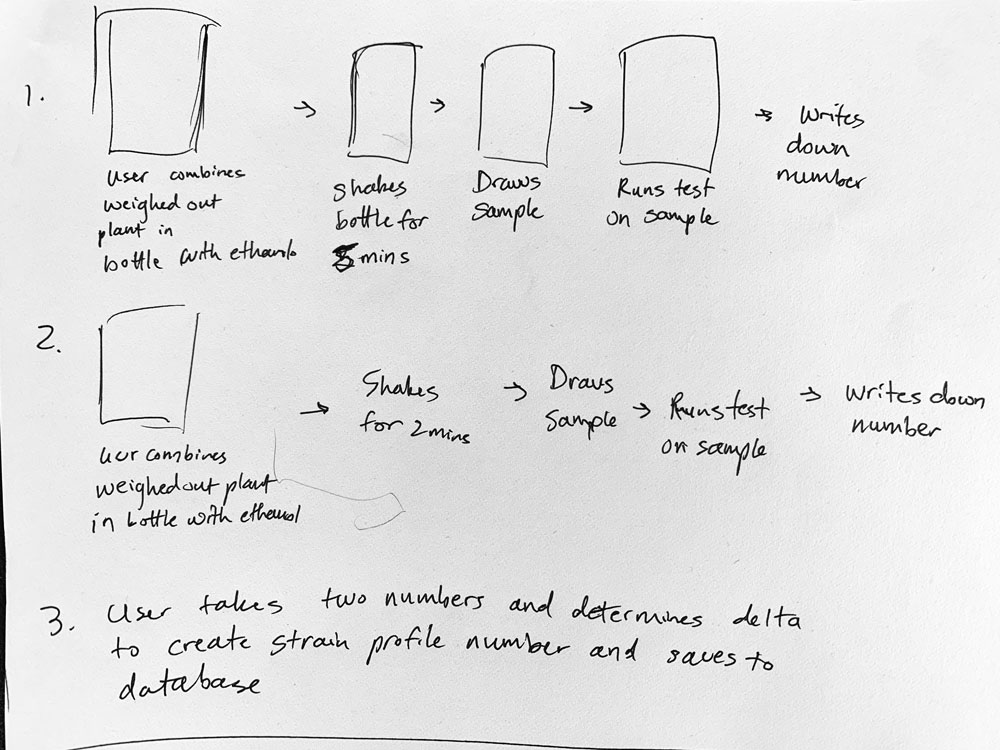 1.
User combines
weighed out
plant in
bottle with ethanol
→ Shakes
bottle for
5 mins
→ Draws
sample
→ Runs test
on sample
→ Writes
down
number
2.
User combines
weighed out plant
in bottle with ethanol
→ Shakes
for 2 mins
→ Draws
sample
→ Runs test
on sample
→ Writes down
number
3. User takes two numbers and determines delta
to create strain profile number and saves to
database